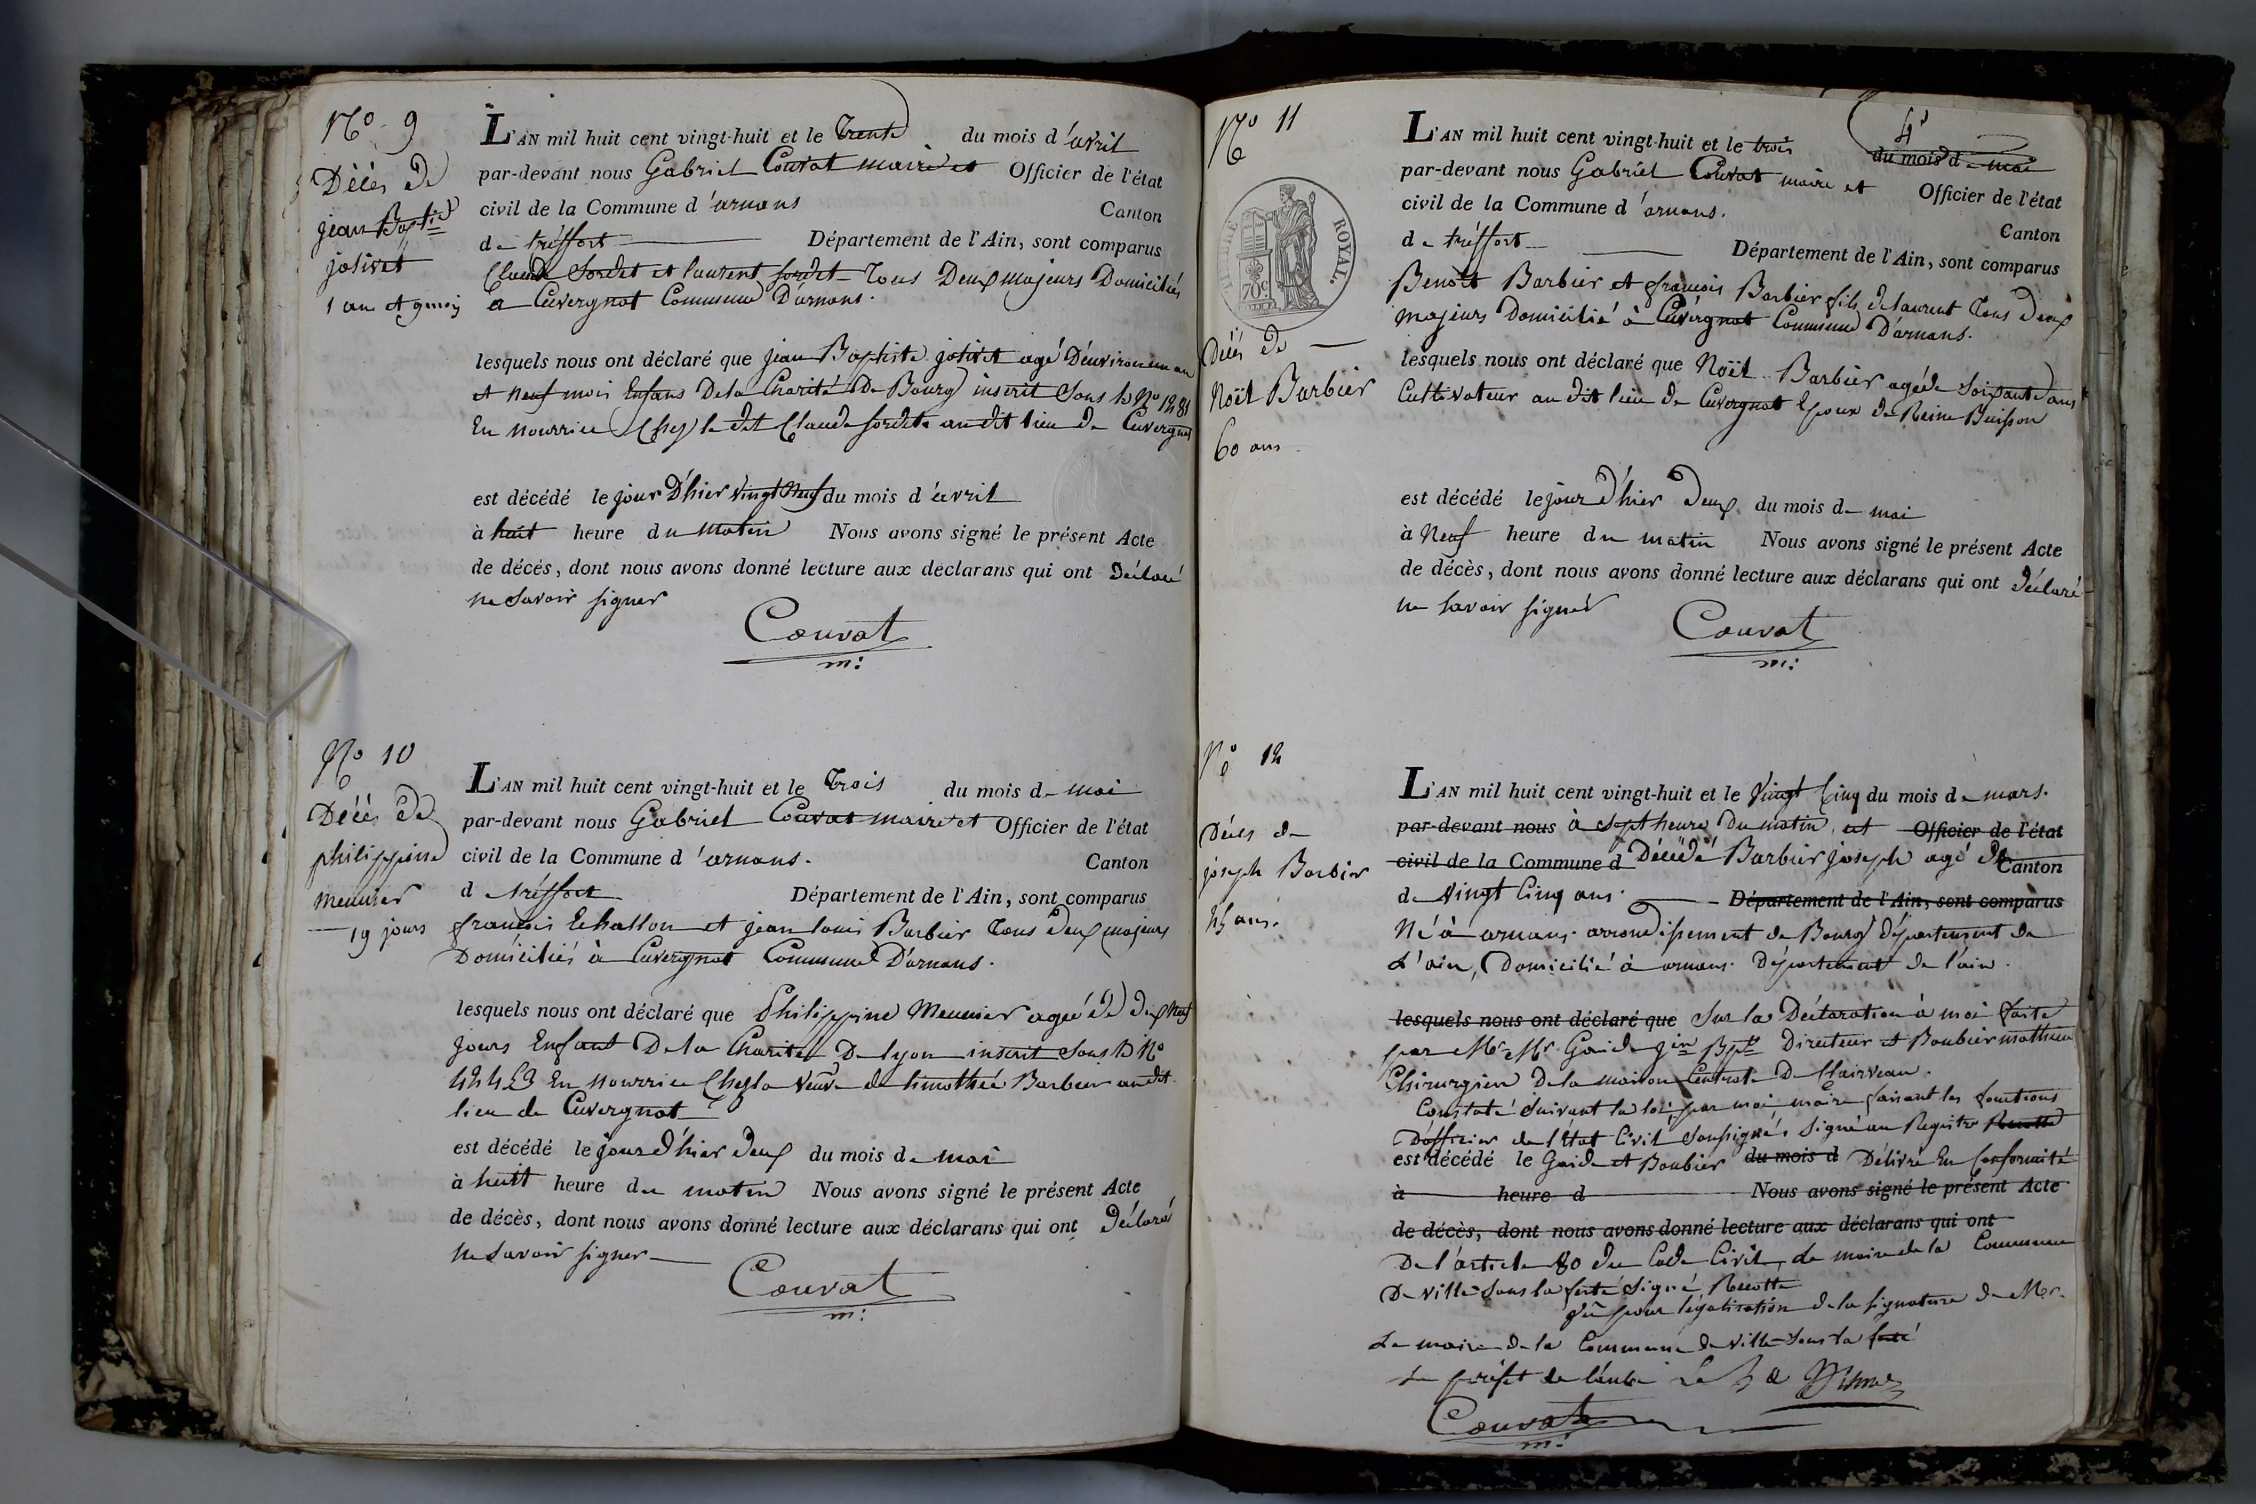 No 9
Décès de
jean Bapte
jolivet
1 an et 9 moi
L'AN mil huit cent vingt-huit et le Trente du mois d'avril
par-devant nous Gabriel Couvat maire et Officier de l'état
civil de la Commune d'arnans Canton
de tréffort Département de l'Ain, sont comparus
Claude Sordet et laurent sordet Tous Deux majeurs Domiciliés
a Cuvergnat Commune D'arnans.
lesquels nous ont déclaré que jean Baptiste jolivet agé D'environ un an
et neuf mois Enfans De la Charité De Bourg inscrit Sous le No 1281
En Nourrice Chez le dit Claude sordet au dit lieu de Cuvergnat
est décédé le jour D'hier vingt Neuf du mois d'avril
à huit heure du matin Nous avons signé le présent Acte
de décès, dont nous avons donné lecture aux declarans qui ont Déclaré
ne Savoir signer
Couvat
m:
No 10
Décès de
philippine
meunier
19 jours
L'AN mil huit cent vingt-huit et le Trois du mois de mai
par-devant nous Gabriel Couvat maire et Officier de l'état
civil de la Commune d'arnans. Canton
de tréffort Département de l'Ain, sont comparus
francois Echallon et jean louis Barbier Tous Deux majeurs
Domiciliés à Cuvergnat Commune D'arnans.
lesquels nous ont déclaré que Philippine Meunier agée de dix Neuf
jours Enfant De la Charité De lyon inscrit Sous le No
En Nourrice Chez la Veuve de timothée Barbier au dit
lieu de Cuvergnat
est décédé le jour d'hier deux du mois de mai
à huit heure du matin Nous avons signé le présent Acte
de décès, dont nous avons donné lecture aux déclarans qui ont Déclaré
ne Savoir signer
Couvat
m:
No 11
TIMBRE ROYAL.
70c
Décès de
Noël Barbier
60 ans
L'AN mil huit cent vingt-huit et le trois du mois de mai
par-devant nous Gabriel Couvat maire et Officier de l'état
civil de la Commune d'arnans. Canton
de tréffort Département de l'Ain, sont comparus
Benoit Barbier et francois Barbier fils de laurent Tous Deux
majeurs Domicilié à Cuvergnat Commune D'arnans.
lesquels nous ont déclaré que Noël Barbier agé de soixante ans
Cultivateur au dit lieu de Cuvergnat Epoux de Reine Buisson
est décédé le jour d'hier Deux du mois de mai
à Neuf heure du matin Nous avons signé le présent Acte
de décès, dont nous avons donné lecture aux déclarans qui ont Déclaré
ne savoir signer
Couvat
m:
No 12
Décès de
joseph Barbier
25 ans.
L'AN mil huit cent vingt-huit et le Vingt Cinq du mois de mars.
par-devant nous à sept heure Du matin est Officier de l'état
civil de la Commune d Décédé Barbier joseph agé de Canton
de Vingt Cinq ans. Département de l'Ain, sont comparus
Né à arnans arrondissement de Bourg département de
L'ain, Domicilié à arnans Département de l'ain.
lesquels nous ont déclaré que Sur la Déclaration à moi faite
par Mr Mr Gaide jin Bpte Directeur et Boubier mathieu
Chirurgien De la maison Centrale De Clairveau.
Constaté Suivant la loi, par moi, maire faisant les fonctions
D'officier de l'Etat Civil Soussigné. Signé au Registre Recotte
est décédé le Gaide et Boubier du mois d Délivré En Conformité
à heure d Nous avons signé le présent Acte
de décès, dont nous avons donné lecture aux déclarans qui ont
De l'article 80 du Code Civil, le maire de la Commune
De ville Sous la ferté Signé Recotte
Vû pour légalisation de la signature de Mr.
Le maire de la Commune de ville Sous la ferté
Le préfet de l'aube
Couvat
m: